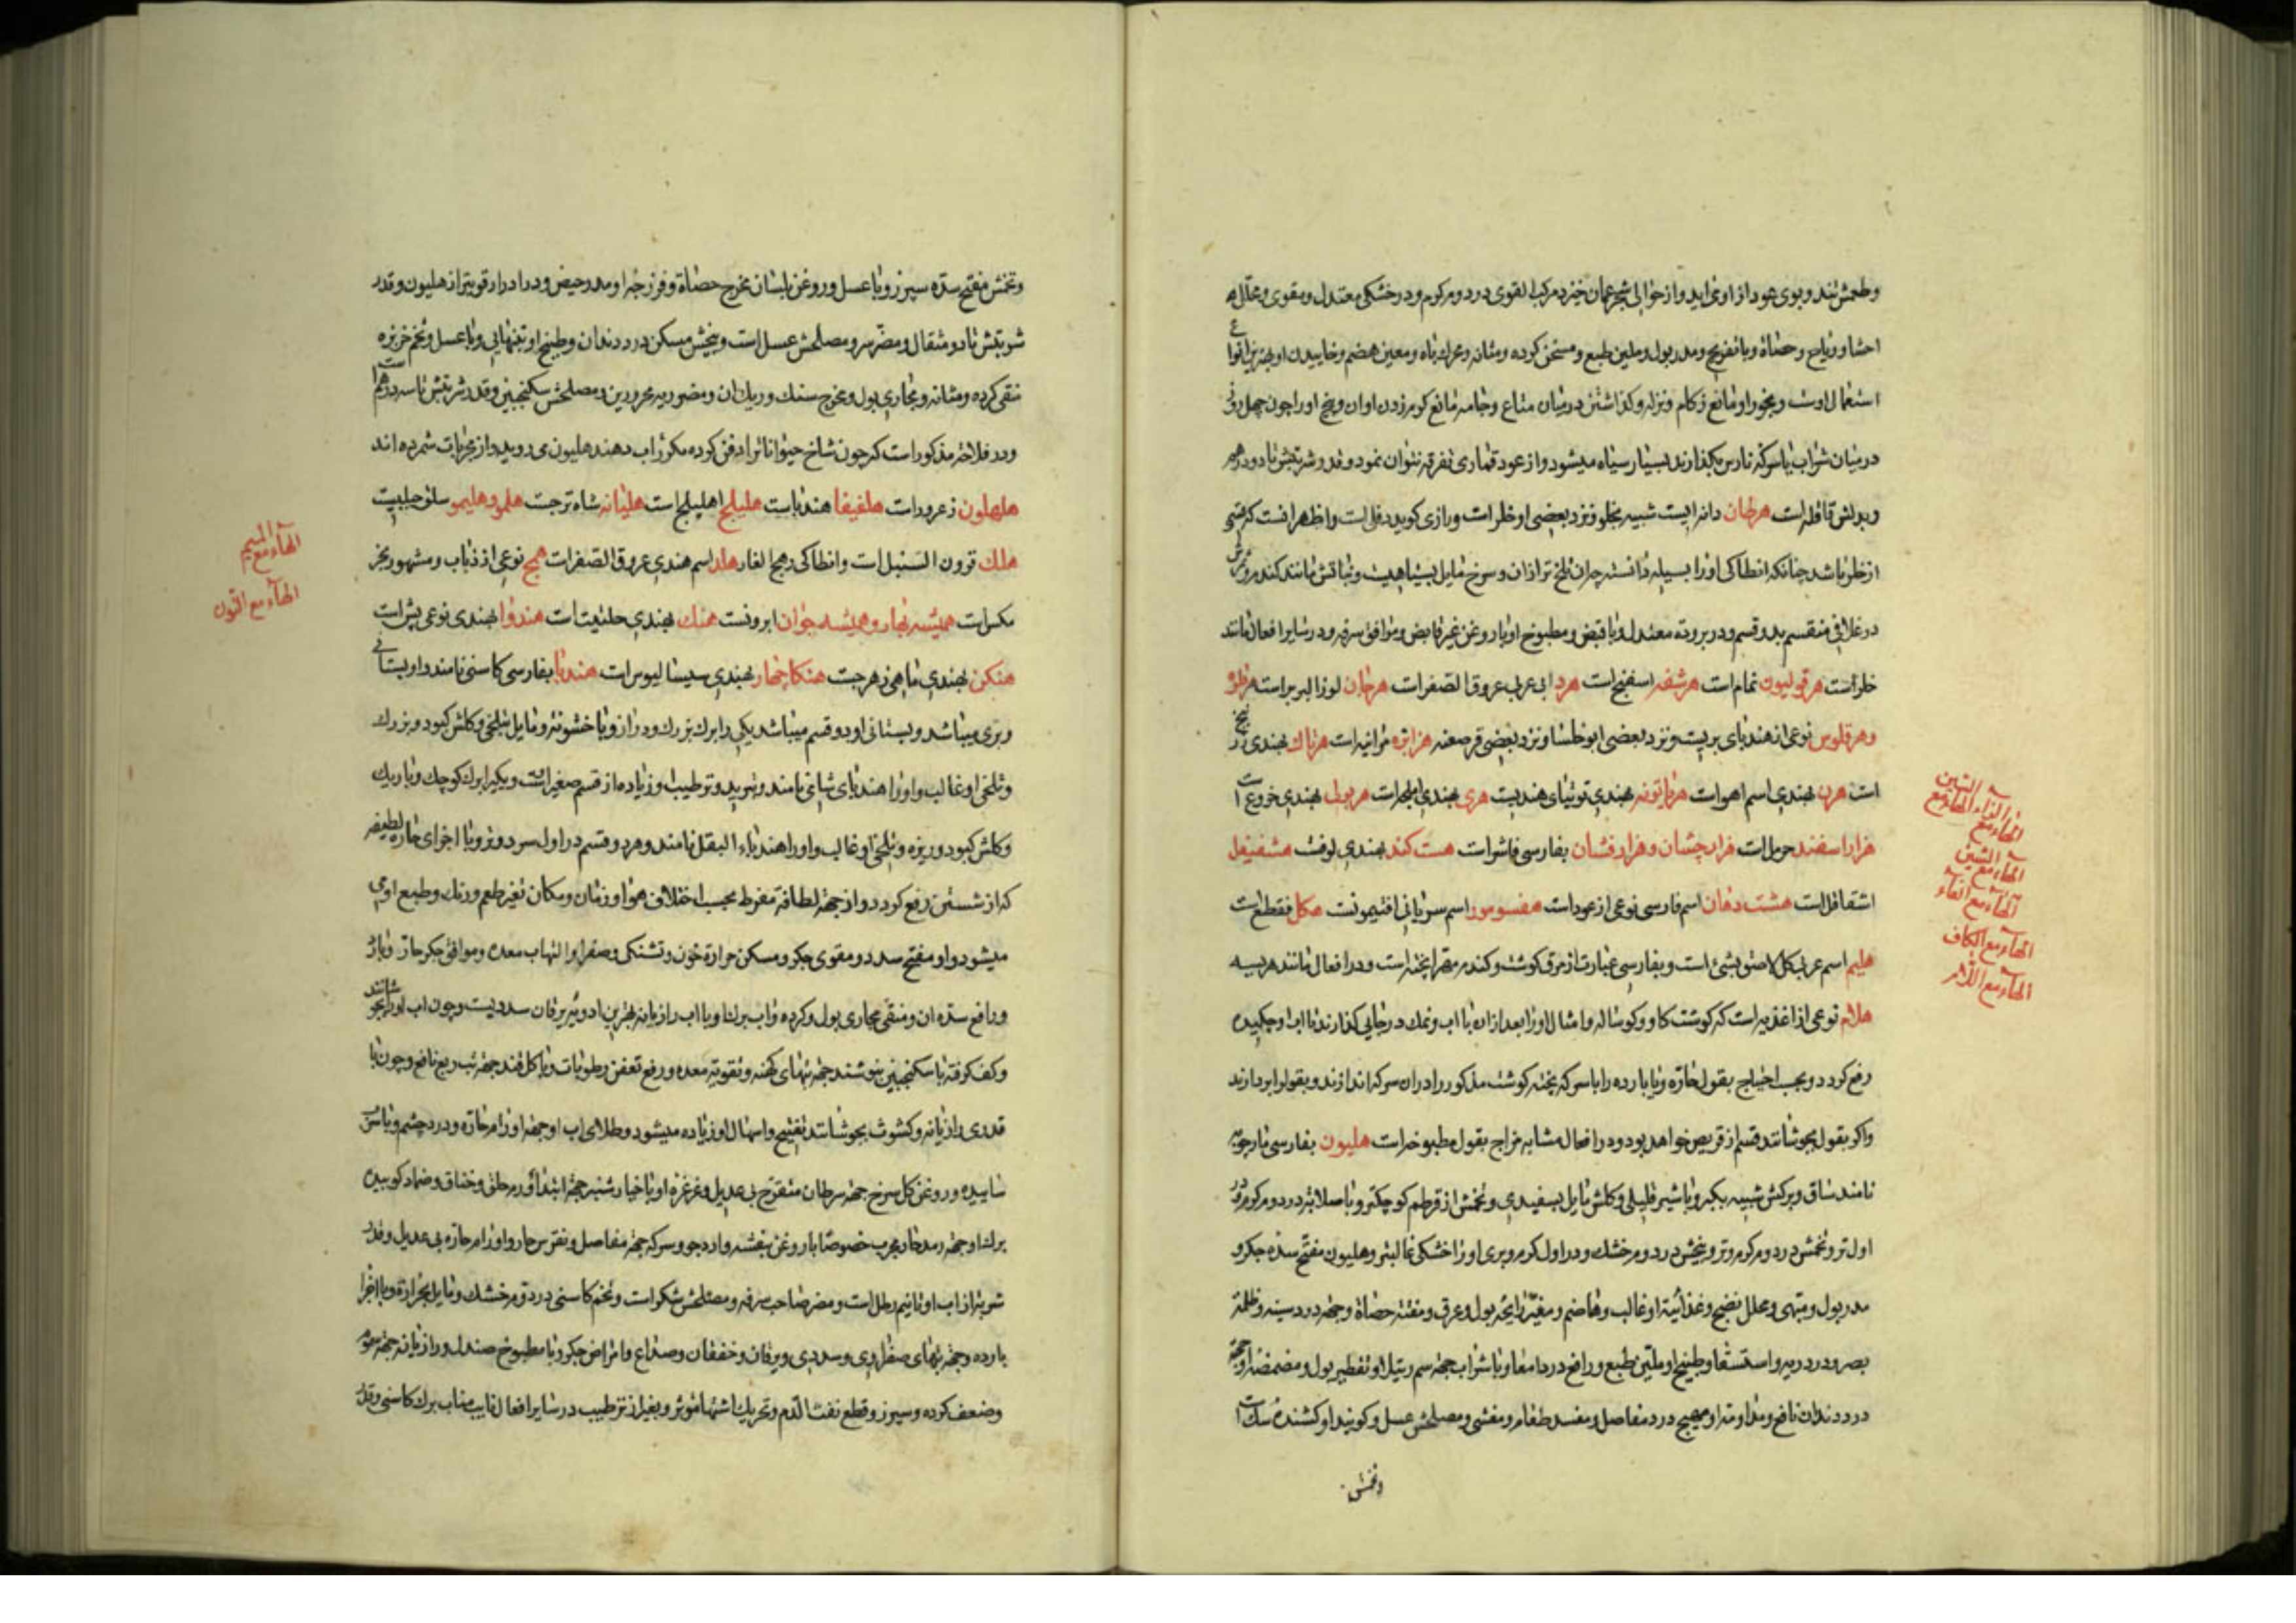 وطعمش تند و بوی عود ازو می‌آید و از حوالی شحر عمان خیزد مرکب القوی در دوم گرم و در خشکی معتدل و مقوی و محلل
احشا و ریاح و حصاة و با تفریح و مدر بول و ملین طبع و مسخن کرده و مثانه و محرک باه و معین هضم و خاییدن او بهترین انواع
استعمال اوست و بخور او مانع زکام و نزله و گذاشتن در میان متاع و جامه مانع کرم زدن او آن و بیخ او را چون چهل روز
در میان شراب یا سرکه نارس بگذارند بسیار سیاه میشود و از عود قماری تفرقه نتوان نمود و قدر شربتش تا دو درهم
و بدلش قاقله است هرطان دانه ایست شبیه بجلو و نزد بعضی او خلر است و رازی گوید دفلی است و اظهر انست که قسمی
از خلر باشد چنانکه انطاکی او را بسیله دانسته چه آن تلخ تر از ان و سرخ مایل بسیاهیست و نباتش مانند گندم و ثمرش
در غلافی منقسم بدو قسم و در برودة معتدل و با قبض و مطبوخ او با روغن غیر قابض و موافق سرفه و در سایر افعال مانند
خلر است هرقولیون نمام است هرشفه اسفنج است هرد ابی عربی عروق الصفر است هرجان لوز البربر است هرطو
وهرقلوس نوعی از هندبای بریست و نزد بعضی ابوخلسا و نزد بعضی قرصعنه هزابره مرانیه است هرتاک بهندی زرنیخ
است هرن بهندی اسم اهو است هرتابوته بهندی توتیای هندیست هری بهندی املج است هربول بهندی خروع است
هزار اسفند حرمل است هزارجشان و هزارفشان بفارسی فاشرا است هست کند بهندی لوفست هشفیفل
اشقاقل است هشت دهان اسم فارسی نوعی از عود است هفسومور اسم سریانی افتیمونست هکل فقطع است
هلیم اسم عربی کل لاصق بشئ است و بفارسی عبارت از مرق گوشت و گندم مقرا پخته است و در افعال مانند هریسه
هلام نوعی از اغذیه است که گوشت گاو و گوساله و امثال او را بعد از ان با آب و نمک در جایی گذارند تا آب او چکیده
رفع گردد و بحسب احتیاج بقول حاره و یا بارده را با سرکه پخته گوشت مذکور را در ان سرکه اندازند و بقول را بردارند
واگر بقول بجوشانند قسم از قریص خواهد بود و در افعال مشابه مزاج بقول مطبوخه است هلیون بفارسی مارچوبه
نامند ساق و برگش شبیه بکبر و با شیر قلیلی و گلش مایل بسفیدی و تخمش از قرطم کوچکتر و با صلابة در دوم گرم و در
اول تر و تخمش در دوم گرم و تر و بیخش در دوم خشک و در اول گرم و بری او را خشکی غالبتر و هلیون مفتح سده جگر و
مدر بول و مبهی و محلل نضیج و غذائیة او غالب و هاضم و مغیر رایحه بول و عرق و مفتت حصاة و جهة درد سینه و ظلمة
بصر و درد ریه و استسقا و طبیخ او ملین طبع و رافع درد امعا و با شراب جهة سم رتیلا و تقطیر بول و مضمضه او جهة
درد دندان نافع و مداومت او مهیج درد مفاصل و مفسد طعام و مغشی و مصلحش عسل و گویند او کشنده سگ است
وتخمش
الهاء مع الزاء
الهاء مع السین
الهاء مع الشین
الهاء مع الفاء
الهاء مع الکاف
الهاء مع اللام
وتخمش مفتح سده سپرز و با عسل و روغن بلسان مخرج حصاة و فرزجه او مدر حیض و در ادرار قویتر از هلیون و قدر
شربتش تا دو مثقال و مضر سر و مصلحش عسل است و بیخش مسکن درد دندان و طبیخ او بتنهایی و با عسل و تخم خربزه
منقی گرده و مثانه و مجاری بول و مخرج سنگ و ریگ ان و مضر ریه محرورین و مصلحش سکنجبین و قدر شربتش تا سه درهم است
ودر فلاحة مذکور است که چون شاخ حیوانات را دفن کرده مکرر آب دهند هلیون می‌روید و از مجربات شمرده اند
هلهلون زعرور است هلفیفا هندباست هلیلج اهلیلج است هلیانه شاه ترجست هلمو و هلیمو سلق جبلیست
هلک قرون السنبل است و انطاکی رهج الفار هلد اسم هندی عروق الصفر است همج نوعی از ذباب و مشهور بخر
مکس است همیشه بهار و همیشه جوان ابرونست هنک بهندی حلتیت است هندوا بهندی نوعی بش است
هنکن بهندی ماهی زهرجست هنکاجهار بهندی سیسالیوس است هندبا بفارسی کاسنی نامند و او بستانی
وبری میباشد و بستانی او دو قسم میباشد یکی را برگ بزرگ و دراز و با خشونة و مایل بتلخی و گلش کبود و بزرگ
وتلخی او غالب و او را هندبای شامی نامند و تبرید و ترطیب او زیاده از قسم صغیر است و یکی را برگ کوچک و باریک
وگلش کبود و ریزه و تلخی او غالب و او را هندباء البقل نامند و هر دو قسم در اول سرد و تر و با اجزای حاره لطیفه
که از شستن رفع گردد و از جهة لطافة مفرط بحسب اختلاف هوا و زمان و مکان تغیر طعم و رنگ و طبع او می
میشود و او مفتح سدد و مقوی جگر و مسکن حرارة خون و تشنگی و صفرا و التهاب معده و موافق جگر حار و بارد
ورافع سده ان و منقی مجاری بول و گرده و آب برگ او با آب رازیانه بهترین ادویه یرقان سددیست و چون آب او را بجوشانند
وکف گرفته با سکنجبین بنوشند جهة تبهای کهنه و تقویة معده و رفع تعفن رطوبات و با گل قند جهة تب ربع نافع و چون با
قدری رازیانه و کشوث بجوشانند تفتیح و اسهال او زیاده میشود و طلای آب او جهة اورام حاره و درد چشم و با
ساییده و روغن گل سرخ جهة سرطان متقرح بی عدیل و غرغره او با خیارشنبر جهة ابتدای ورم حلق و خناق و ضماد کوبیده
برگ او جهة رمد حار مجرب خصوصا با روغن بنفشه و ارد جو و سرکه جهة مفاصل و نقرس حار و اورام حاره بی عدیل و قدر
شربة از آب او تا نیم رطل است و مضر صاحب سرفه و مصلحش شکر است و تخم کاسنی در دوم خشک و مایل بحرارة و با اجزا
بارده و جهة تبهای صفراوی و سددی و یرقان و خفقان و صداع و امراض جگر و با مطبوخ صندل و رازیانه جهة
وضعف گرده و سپرز و قطع نفث الدم و تحریک اشتها موثر و بغیر از ترطیب در سایر افعال نایب مناب برگ کاسنی و قدر
الهاء مع المیم
الهاء مع النون